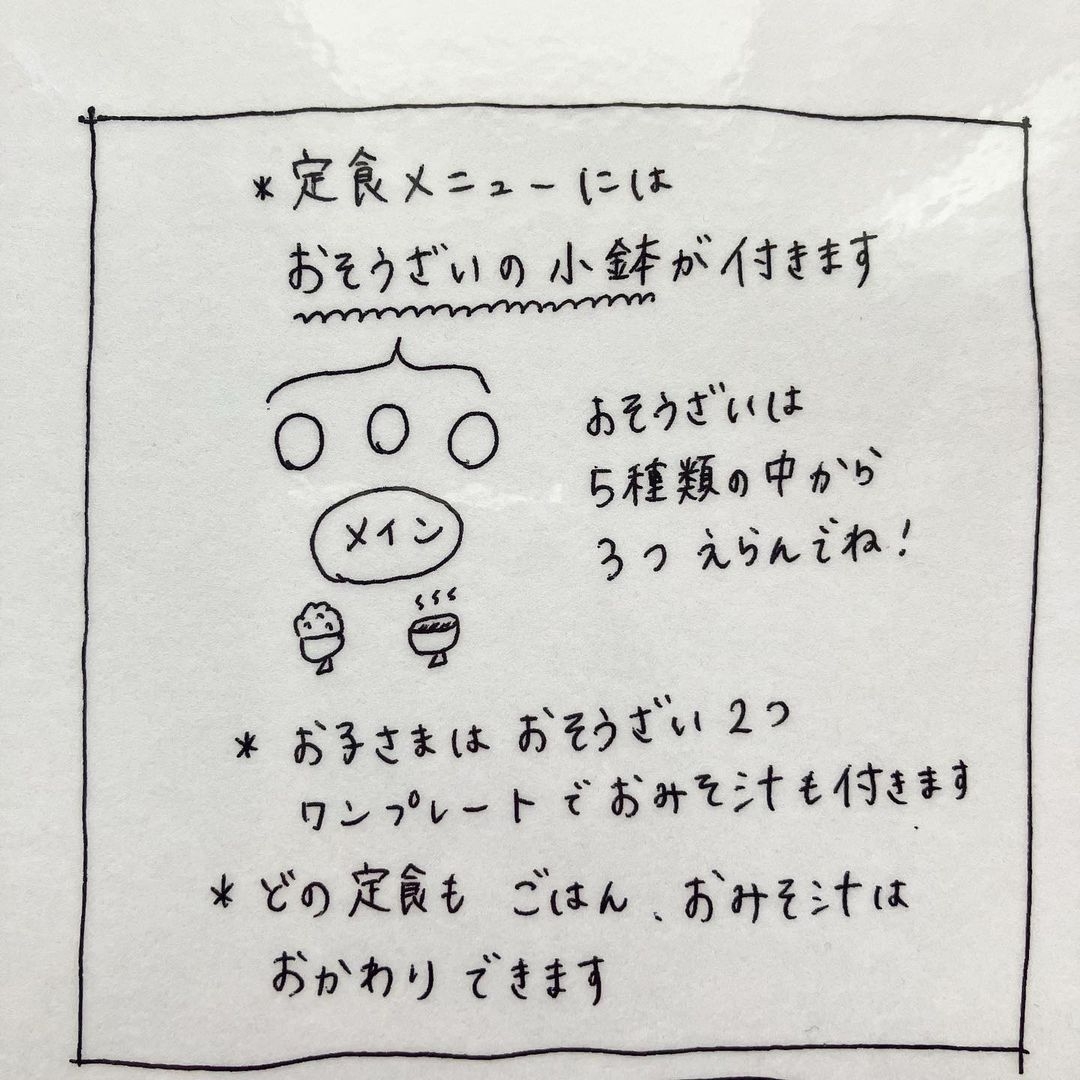 * 定食メニューには
おそうざいの小鉢が付きます
おそうざいは
5種類の中から
3つ えらんでね!
メイン
* お子さまは おそうざい2つ
ワンプレートでおみそ汁も付きます
* どの定食も ごはん、おみそ汁は
おかわりできます